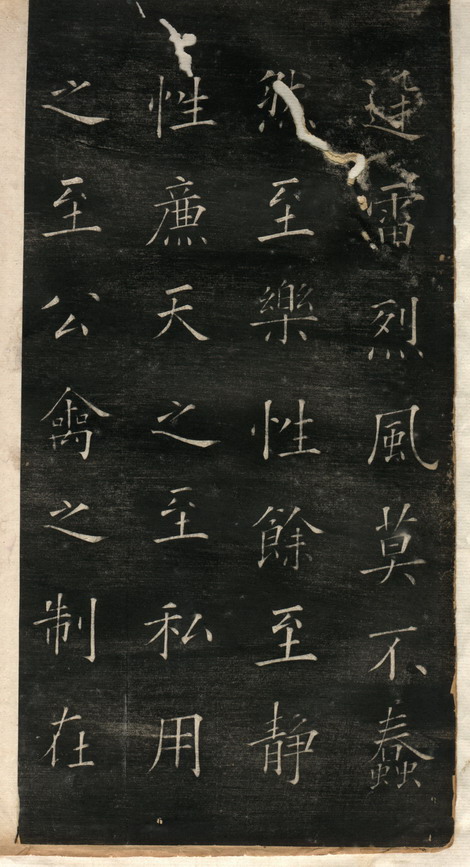 迅雷烈風莫不蠢
然至樂性餘至静
性廉天之至私用
之至公禽之制在